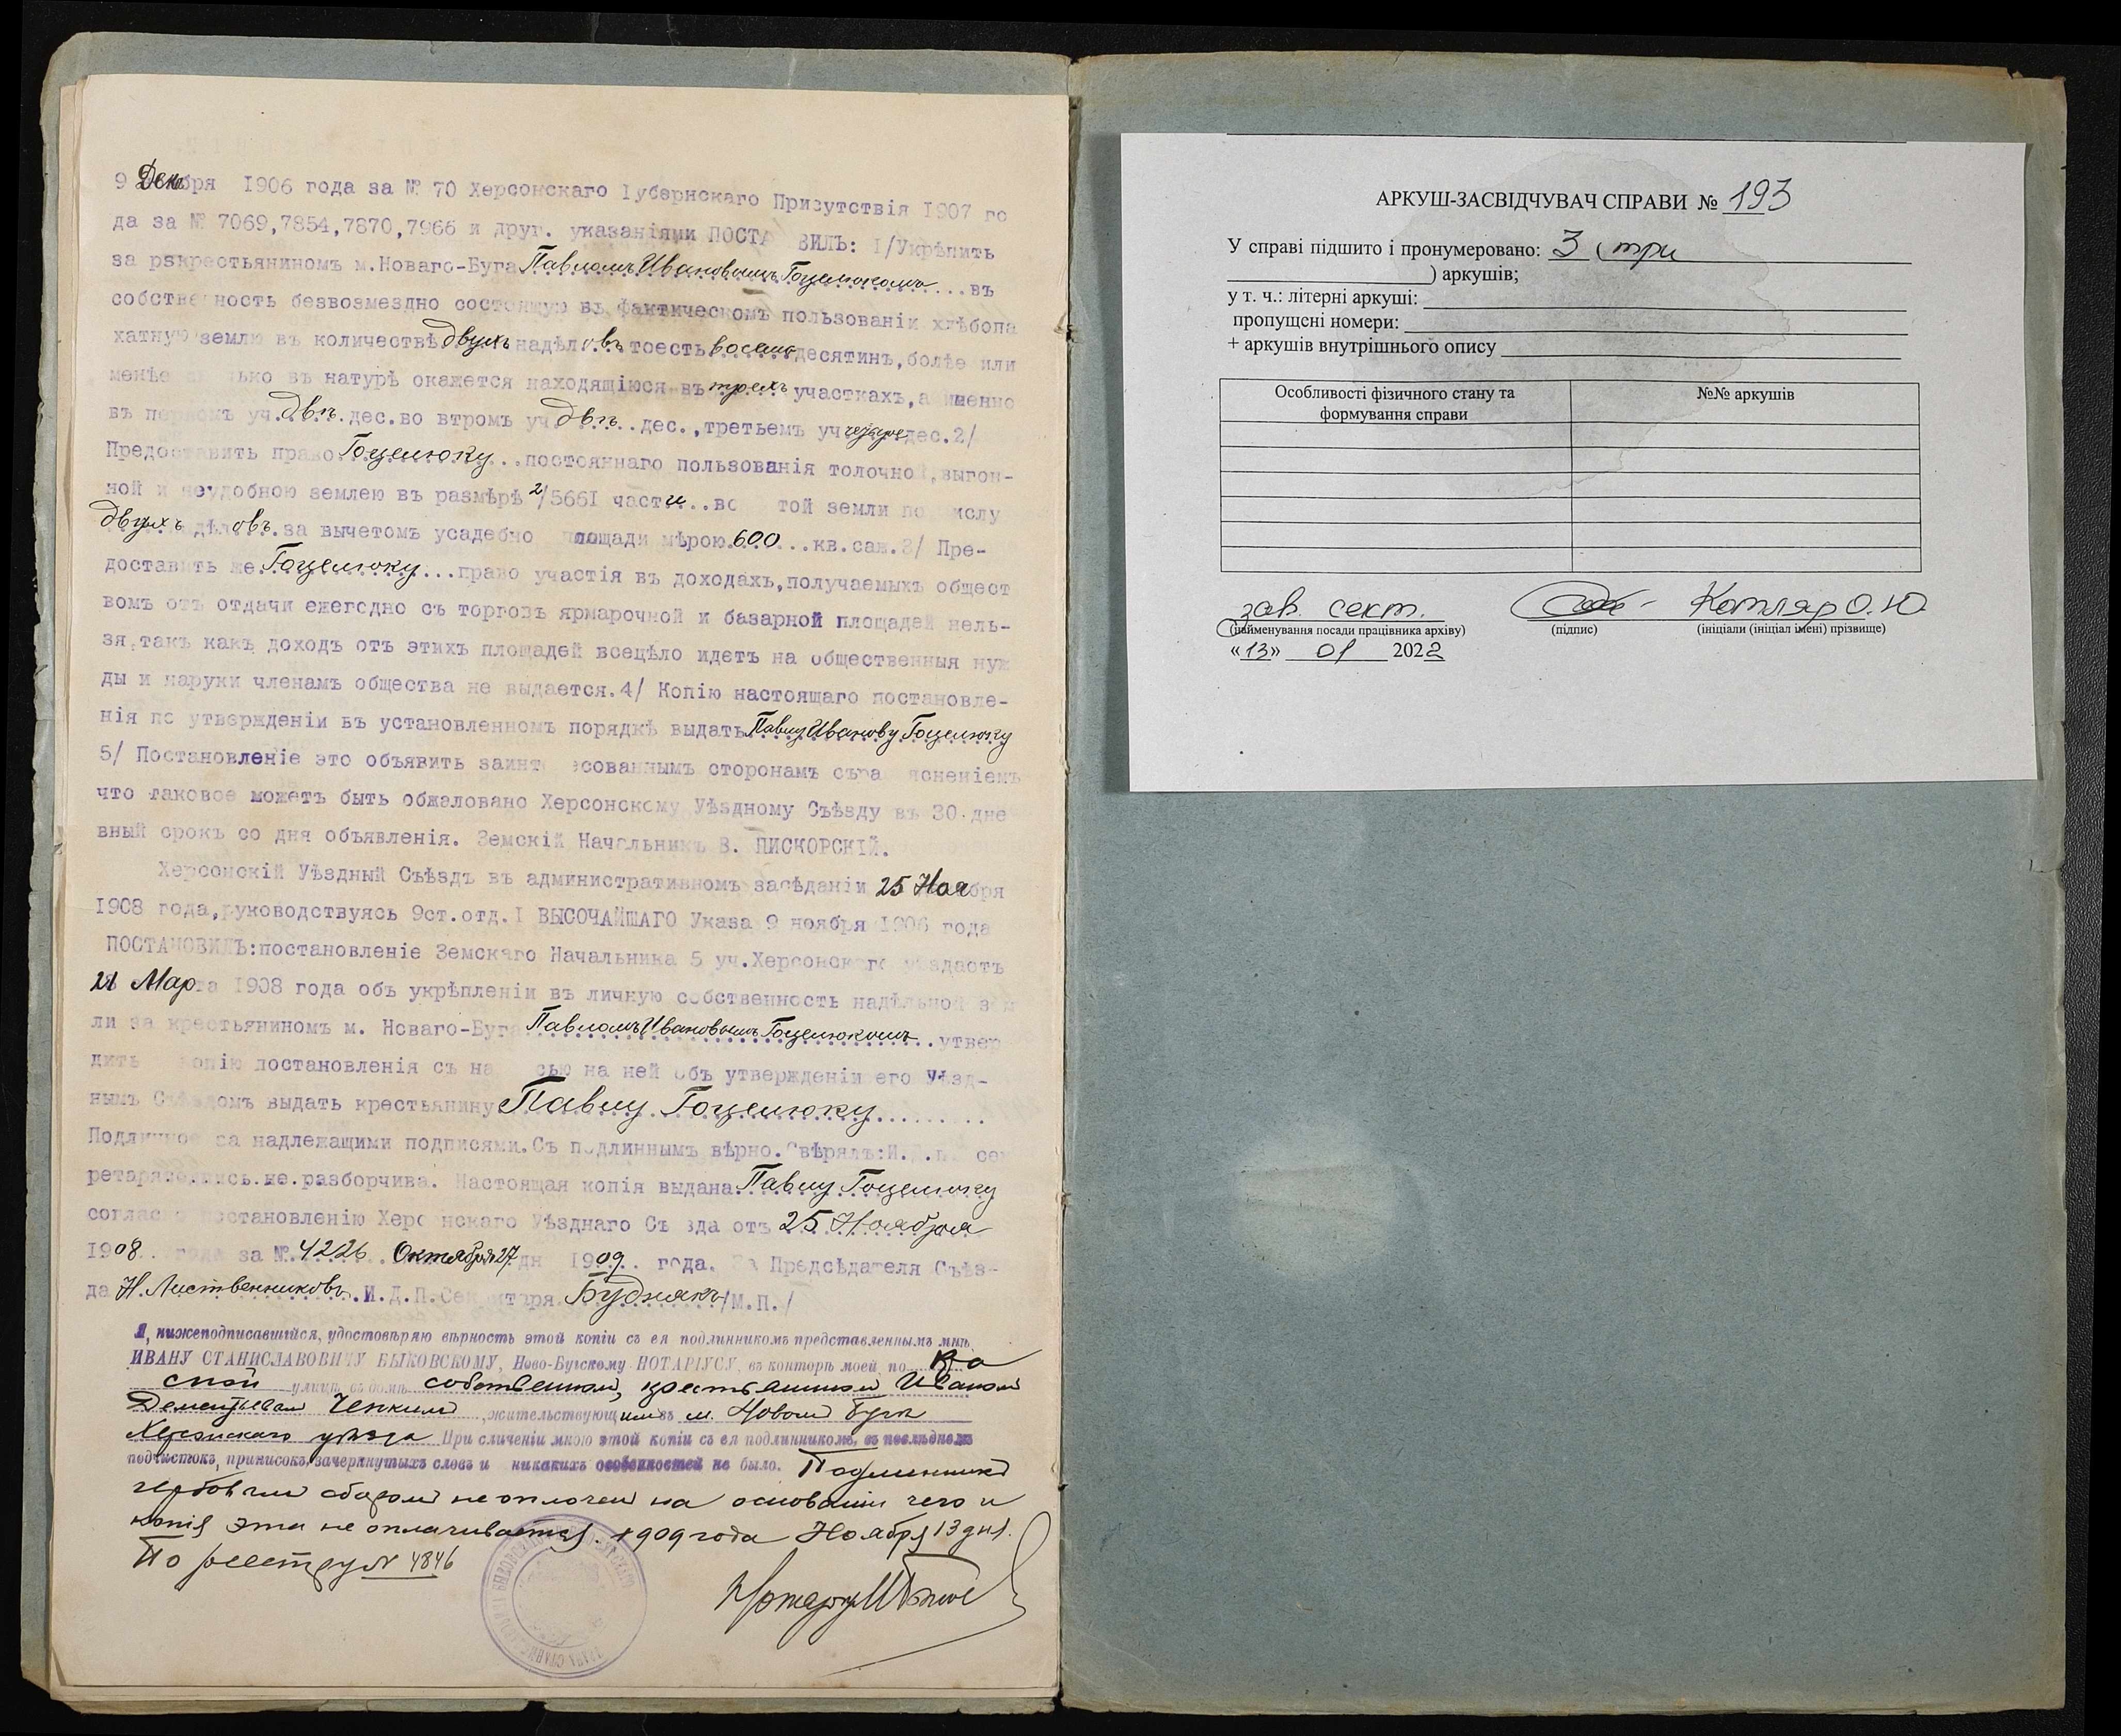 9 Декября 1906 года за № 70 Херсонскаго Губернскаго Присутствія 1907 го
да за № 7069,7854,7870,7966 и друг. указаніями ПОСТА ВИЛЪ: I/Укрѣпить
за крестьяниномъ м.Новаго-Буга Павломъ Ивановымъ Гоцелюкомъ...въ
собственность безвозмездно состоящую въ фактическомъ пользованіи хлѣбопа
хатную землю въ количествѣ двухъ надѣловъ тоесть восемь десятинъ,болѣе или
менѣе сколько въ натурѣ окажется находящіюся въ трехъ участкахъ,а именно
въ первомъ уч.двѣ.дес.во втромъ уч двѣ...дес.,третьемъ уч четыре дес.2/
Предоставить право Гоцелюку...постояннаго пользованія толочной,выгон-
ной и неудобною землею въ размѣрѣ 2/5661 части...во той земли по числу
двухъ надѣловъ.за вычетомъ усадебно площади мѣрою.600...кв.саж.3/ Пре-
доставить же.Гоцелюку...право участія въ доходахъ,получаемыхъ общест
вомъ отъ отдачи ежегодно съ торговъ ярмарочной и базарной площадей нель-
зя,такъ какъ доходъ отъ этихъ площадей всецѣло идетъ на общественныя нуж
ды и наруки членамъ общества не выдается.4/ Копію настоящаго постановле-
нія по утвержденіи въ установленномъ порядкѣ выдать Павлу Иванову Гоцелюку
5/ Постановленіе это объявить заинтересованнымъ сторонамъ съ разъясненіемъ
что таковое можетъ быть обжаловано Херсонскому Уѣздному Съѣзду въ 30.дне
вный срокъ со дня объявленія. Земскій Начальникъ В. ПИСКОРСКІЙ.
Херсонскій Уѣздный Съѣздъ въ административномъ засѣданіи 25 Ноября
1908 года,руководствуясь 9ст.отд.I ВЫСОЧАЙШАГО Указа 9 ноября 1906 года
ПОСТАНОВИЛЪ:постановленіе Земскаго Начальника 5 уч.Херсонскаго уѣздаотъ
21 Марта 1908 года объ укрѣпленіи въ личную собственность надѣльной зем
ли за крестьяниномъ м. Новаго-Буга Павломъ Ивановымъ Гоцелюкомъ..утвер
дить копію постановленія съ на сью на ней объ утвержденіи его Уѣзд-
нымъ Съѣздомъ выдать крестьянину Павлу Гоцелюку.........
Подлинное за надлежащими подписями.Съ подлиннымъ вѣрно.Свѣрялъ:И.Д.п. сек
ретаряподпись.не.разборчива. Настоящая копія выдана.Павлу Гоцелюку
согласно постановленію Херсонскаго Уѣзднаго Съѣзда отъ 25 Ноября
1908.. года за №.4226. Октября 27 дн 1909.. года. За Предсѣдателя Съѣз-
да Н.Лиственниковъ.И.Д.П.Секретаря Буднякъ/М.П./
Я, нижеподписавшійся, удостовѣряю вѣрность этой копіи съ ея подлинникомъ представленнымъ мнѣ,
ИВАНУ СТАНИСЛАВОВИЧУ БЫКОВСКОМУ, Ново-Бугскому НОТАРІУСУ, въ конторѣ моей, по
ской улицѣ въ домѣ собственном, крестьянином Иваном
Дементьевым Ченким, жительствующимъ въ м. Новом Бугѣ
Херсонскаго уѣзда При сличеніи мною этой копіи съ ея подлинникомъ, въ послѣднемъ
подчистокъ, приписокъ, зачеркнутыхъ словъ и никакихъ особенностей не было. Подлинник
гербовым сбором не оплочен на основании чего и
копія эта не оплачивается. 1909 года Ноября 13 дня.
По реестру № 4846
Нотаріус
АРКУШ-ЗАСВІДЧУВАЧ СПРАВИ № 193
У справі підшито і пронумеровано: 3 (три
) аркушів;
у т. ч.: літерні аркуші:
пропущені номери:
+ аркушів внутрішнього опису
Особливості фізичного стану та формування справи
№№ аркушів
зав. сект. Котляр О.Ю
(найменування посади працівника архіву) (підпис) (ініціали (ініціал імені) прізвище)
«13» 01 2022